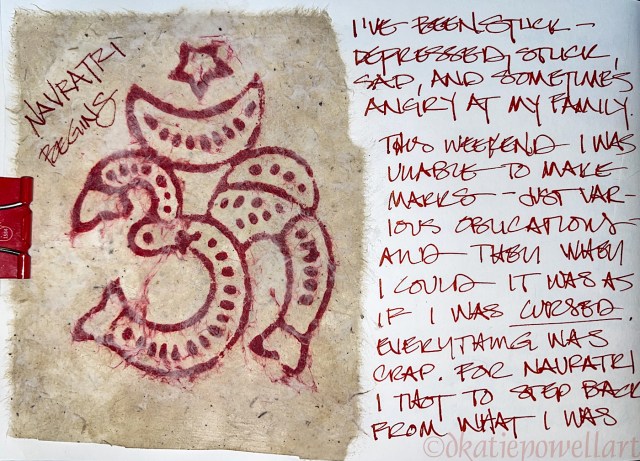 NAVRATRI
BEGINS
I'VE BEEN STUCK –
DEPRESSED, STUCK,
SAD, AND SOMETIMES
ANGRY AT MY FAMILY.
THIS WEEKEND I WAS
UNABLE TO MAKE
MARKS – JUST VAR-
IOUS OBLIGATIONS –
AND THEN WHEN
I COULD IT WAS AS
IF I WAS CURSED.
EVERYTHING WAS
CRAP. FOR NAVRATRI
I THOT TO STEP BACK
FROM WHAT I WAS
©dkatiepowellart